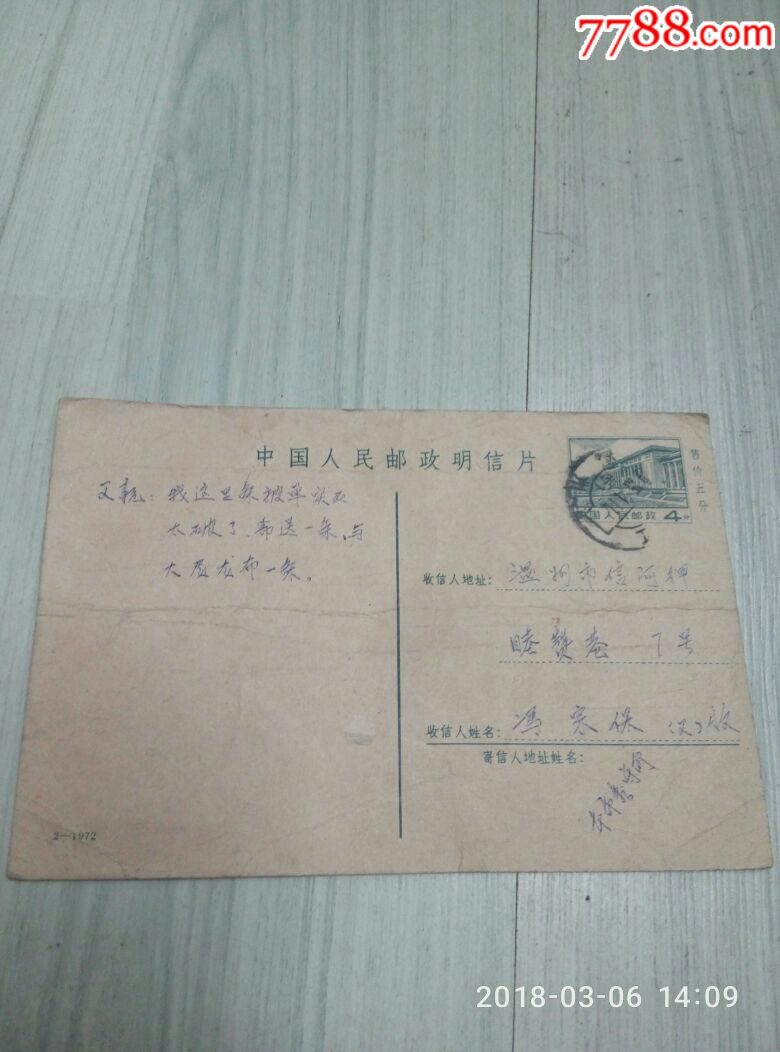 7788.com
中国人民邮政明信片
售价五分
中国人民邮政 4分
父亲：我这里条被单实在
太破了、带送一条、与
大 龙布一条。
收信人地址：温州市信河
7号
收信人姓名：冯宋保（父）收
寄信人地址姓名：
2—1972
2018-03-06 14:09